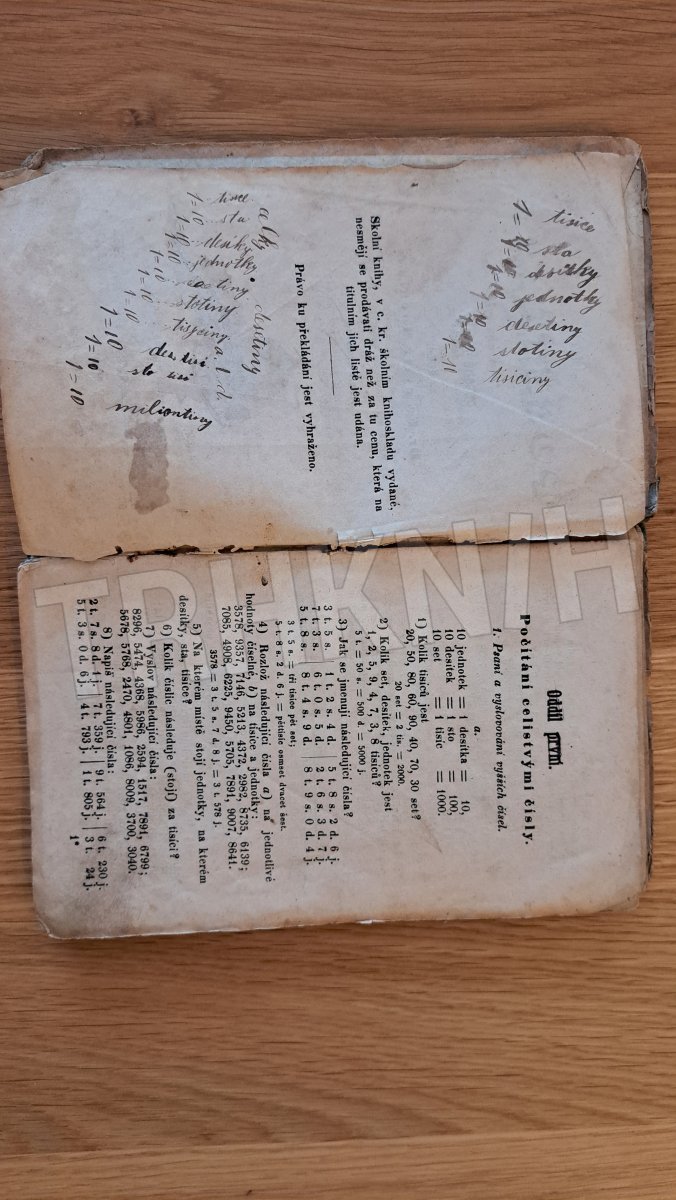 tisíce
1=10 sta
1=10 desítky
1=10 jednotky
1=10 desetiny
stotiny
1=10 tisíciny
Školní knihy, v c. kr. školním knihoskladu vydané,
nesmějí se prodávati dráž než za tu cenu, která na
titulním jich listě jest udána.
Právo ku překládání jest vyhraženo.
celky desetiny
1=10 sta
1=10 desíky
1=10 jednotky
1=10
1=10 stotiny
1=10 tisíciny
a. t. d.
1=10 des. tisí
1=10 sto tisí
1=10 miliontiny
Oddíl první.
Počítání celistvými čísly.
1. Psaní a vyslovování vyšších čísel.
a.
10 jednotek = 1 desítka = 10,
10 desítek = 1 sto = 100,
10 set = 1 tisíc = 1000.
1) Kolik tisíců jest
20, 50, 80, 60, 90, 40, 70, 30 set?
20 set = 2 tis. = 2000.
2) Kolik set, desítek, jednotek jest
1, 2, 5, 9, 4, 7, 3, 8 tisíců?
5 t. = 50 s. = 500 d. = 5000 j.
3) Jak se jmenují následující čísla?
3 t. 5 s. | 1 t. 2 s. 4 d. | 5 t. 8 s. 2 d. 6 j.
7 t. 3 s. | 6 t. 0 s. 5 d. | 2 t. 6 s. 3 d. 7 j.
5 t. 8 s. | 8 t. 4 s. 9 d. | 8 t. 9 s. 0 d. 4 j.
3 t. 5 s. = tři tisíce pět set;
5 t. 8 s. 2 d. 6 j. = pěttisíc osmset dvacet šest.
4) Rozlož následující čísla a) na jednotlivé
hodnoty číselné, b) na tisíce a jednotky:
3578, 9357, 7146, 5213, 4372, 2982, 8735, 6139;
7085, 4908, 6225, 9450, 5705, 7891, 9007, 8641.
3578 = 3 t. 5 s. 7 d. 8 j. = 3 t. 578 j.
5) Na kterém místě stojí jednotky, na kterém
desítky, sta, tisíce?
6) Kolik číslic následuje (stojí) za tisíci?
7) Vyslov následující čísla:
8296, 5474, 4368, 5986, 2594, 1517, 7891, 6799;
5678, 5768, 2470, 4801, 1086, 8009, 3700, 3040.
8) Napiš následující čísla:
2 t. 7 s. 8 d. 1 j. | 7 t. 359 j. | 9 t. 564 j. | 6 t. 230 j.
5 t. 3 s. 0 d. 6 j. | 4 t. 793 j. | 1 t. 805 j. | 3 t. 24 j.
1*